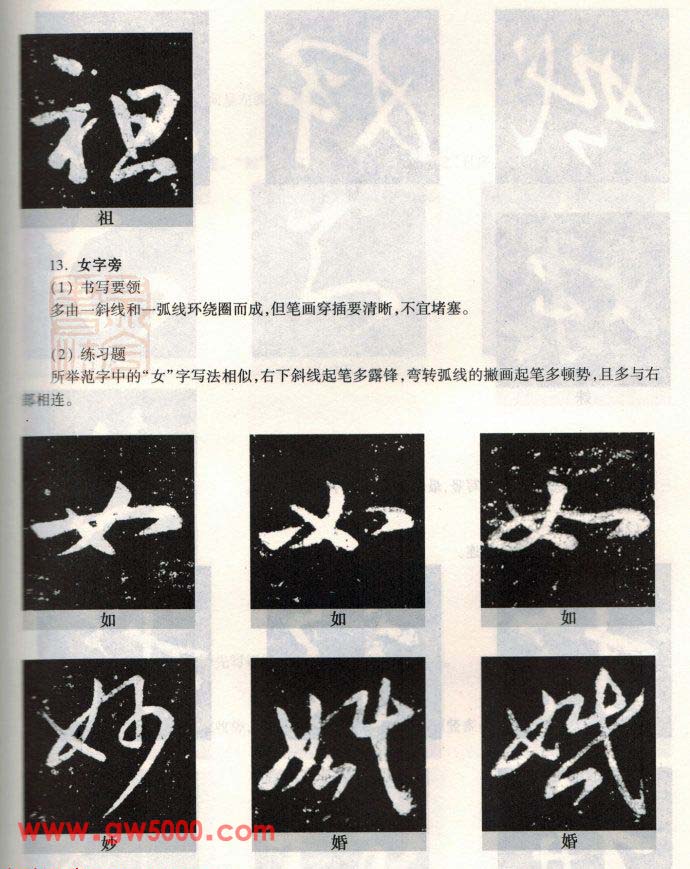 祖
祖
13. 女字旁
(1) 书写要领
多由一斜线和一弧线环绕圈而成,但笔画穿插要清晰,不宜堵塞。
(2) 练习题
所举范字中的“女”字写法相似,右下斜线起笔多露锋,弯转弧线的撇画起笔多顿势,且多与右
部相连。
如 如 如
如 如 如
妙 婚 婚
www.gw5000.com
妙 婚 婚